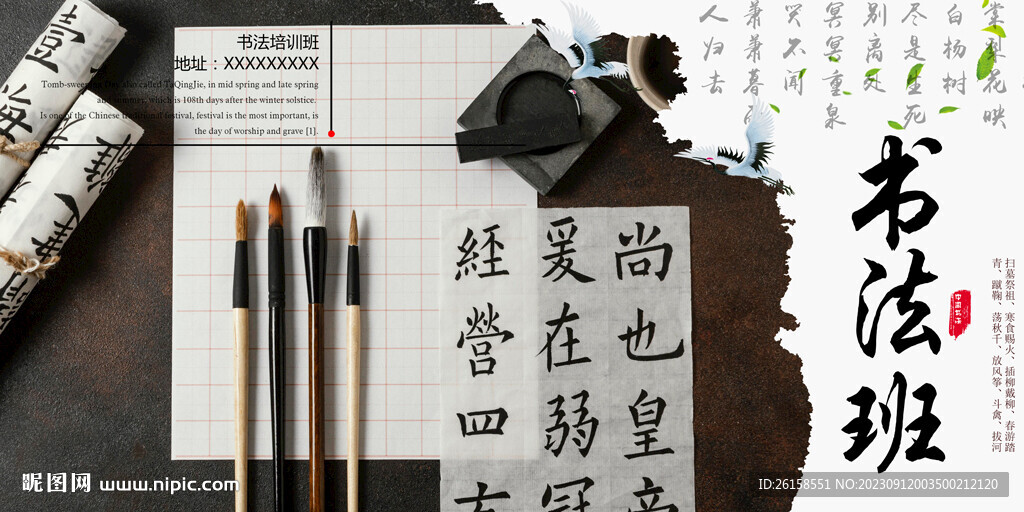 书法培训班
地址：XXXXXXXXX
Tomb-sweeping Day also called TaQingJie, in mid spring and late spring
and summer, which is 108th days after the winter solstice.
Is one of the Chinese traditional festival, festival is the most important, is
the day of worship and grave [1].
棠梨花映
白杨树
尽是生死
别离处
冥冥重泉
哭不闻
萧萧暮雨
人归去
书法班
扫墓祭祖、寒食赐火、插柳戴柳、春游踏
青、蹴鞠、荡秋千、放风筝、斗禽、拔河
尚也皇帝
爰在弱冠
經營四方
壹
昵图网 www.nipic.com
ID:26158551 NO:20230912003500212120